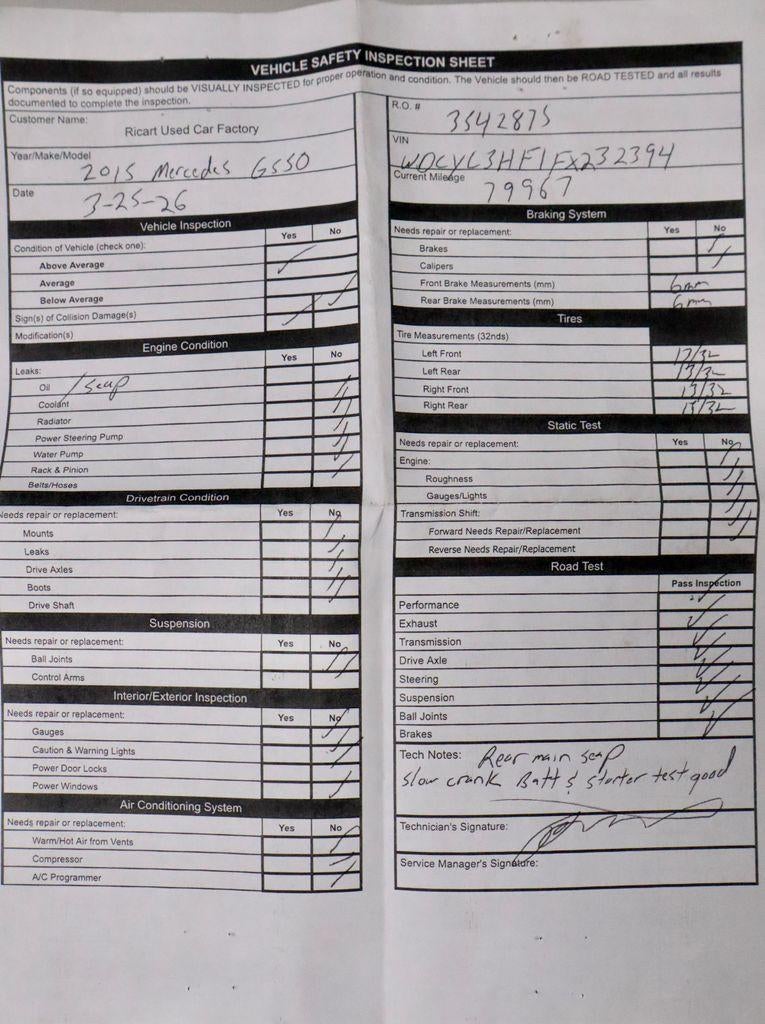 VEHICLE SAFETY INSPECTION SHEET
Components (if so equipped) should be VISUALLY INSPECTED for proper operation and condition. The Vehicle should then be ROAD TESTED and all results
documented to complete the inspection.
Customer Name:
Ricart Used Car Factory
Year/Make/Model
2015 Mercedes G550
Date
3-25-26
Vehicle Inspection
Yes No
Condition of Vehicle (check one):
Above Average
Average
Below Average
Sign(s) of Collision Damage(s)
Modification(s)
Engine Condition
Yes No
Leaks:
Oil / seap
Coolant
Radiator
Power Steering Pump
Water Pump
Rack & Pinion
Belts/Hoses
Drivetrain Condition
Needs repair or replacement: Yes No
Mounts
Leaks
Drive Axles
Boots
Drive Shaft
Suspension
Needs repair or replacement: Yes No
Ball Joints
Control Arms
Interior/Exterior Inspection
Needs repair or replacement: Yes No
Gauges
Caution & Warning Lights
Power Door Locks
Power Windows
Air Conditioning System
Needs repair or replacement: Yes No
Warm/Hot Air from Vents
Compressor
A/C Programmer
R.O. #
3542875
VIN
WDCYC3HF1FX232394
Current Mileage
79967
Braking System
Needs repair or replacement: Yes No
Brakes
Calipers
Front Brake Measurements (mm) 6mm
Rear Brake Measurements (mm) 6mm
Tires
Tire Measurements (32nds)
Left Front
Left Rear 13/32
Right Front 13/32
Right Rear 13/32
Static Test
Needs repair or replacement: Yes No
Engine:
Roughness
Gauges/Lights
Transmission Shift:
Forward Needs Repair/Replacement
Reverse Needs Repair/Replacement
Road Test
Pass Inspection
Performance
Exhaust
Transmission
Drive Axle
Steering
Suspension
Ball Joints
Brakes
Tech Notes: Rear main seap
slow crank Batt & starter test good
Technician's Signature:
Service Manager's Signature: